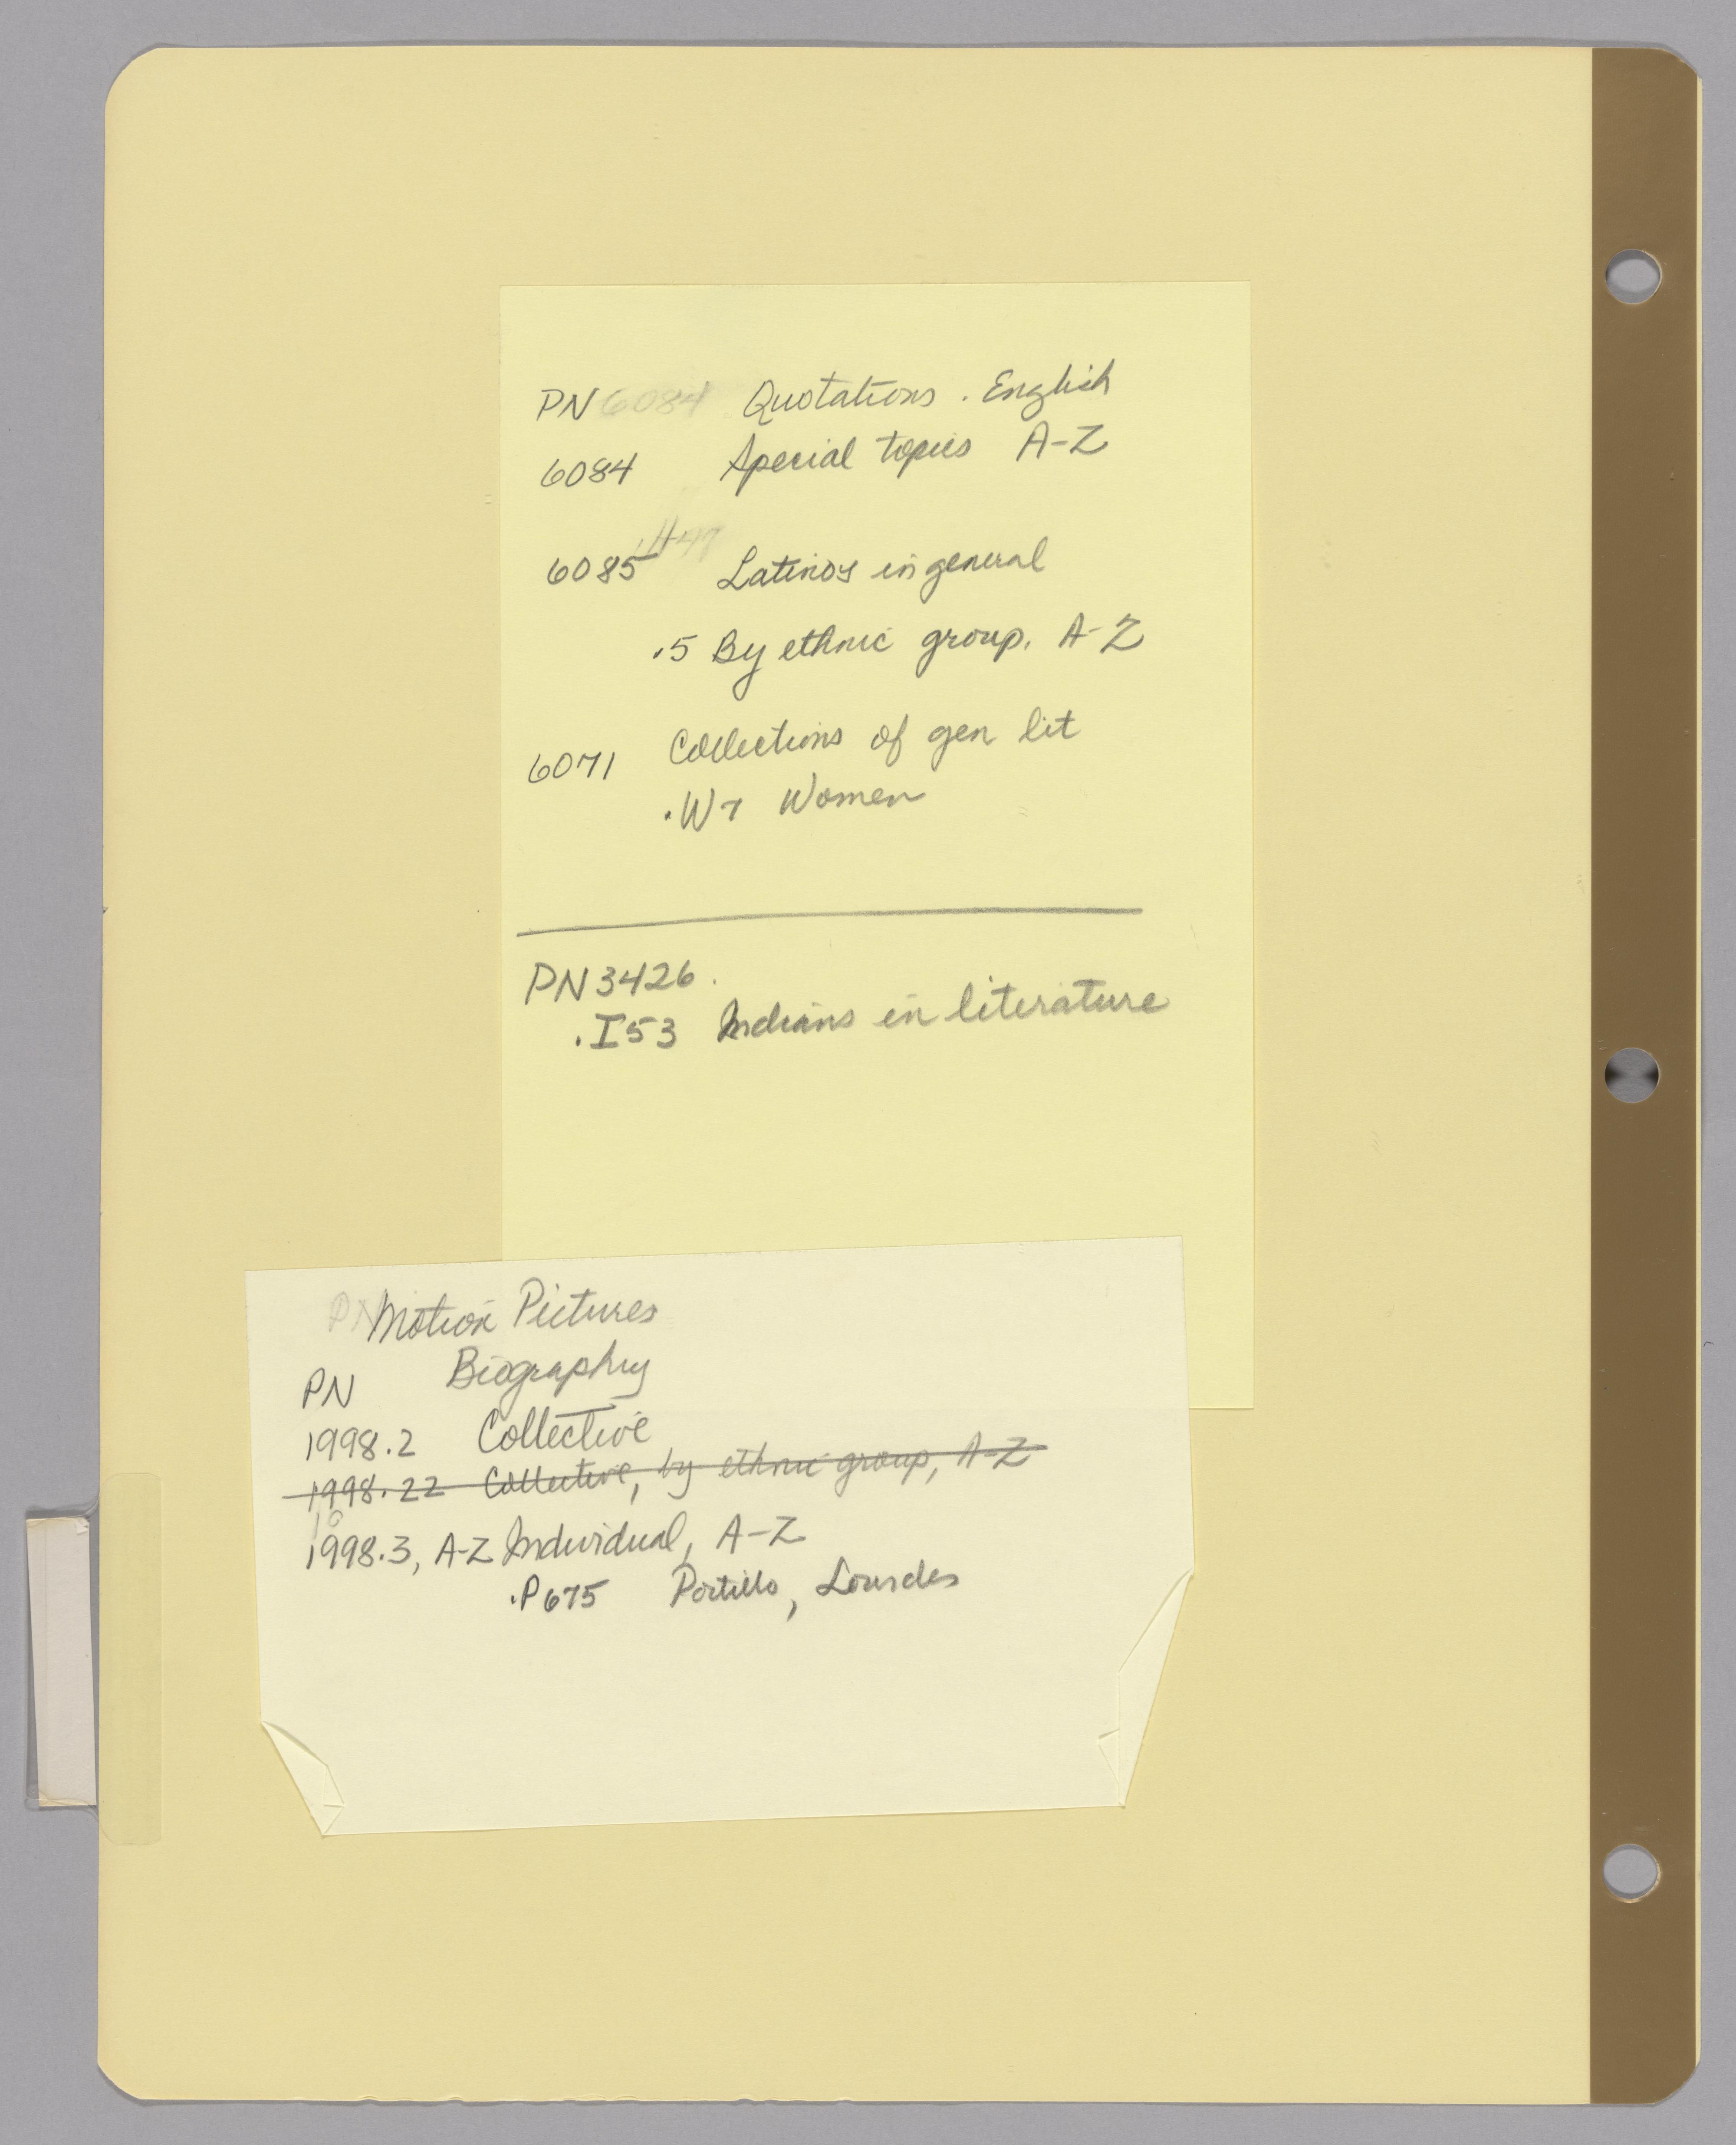 PN 6084 Quotations. English
6084 Special topics A-Z
6085 .H47 Latinos in general
.5 By ethnic group, A-Z
6071 Collections of gen lit
.W7 Women
PN3426.
.I53 Indians in literature
PN Motion Pictures
PN Biography
1998.2 Collective
1998.22 Collective, by ethnic group, A-Z
1998.3, A-Z Individual, A-Z
.P675 Portillo, Lourdes